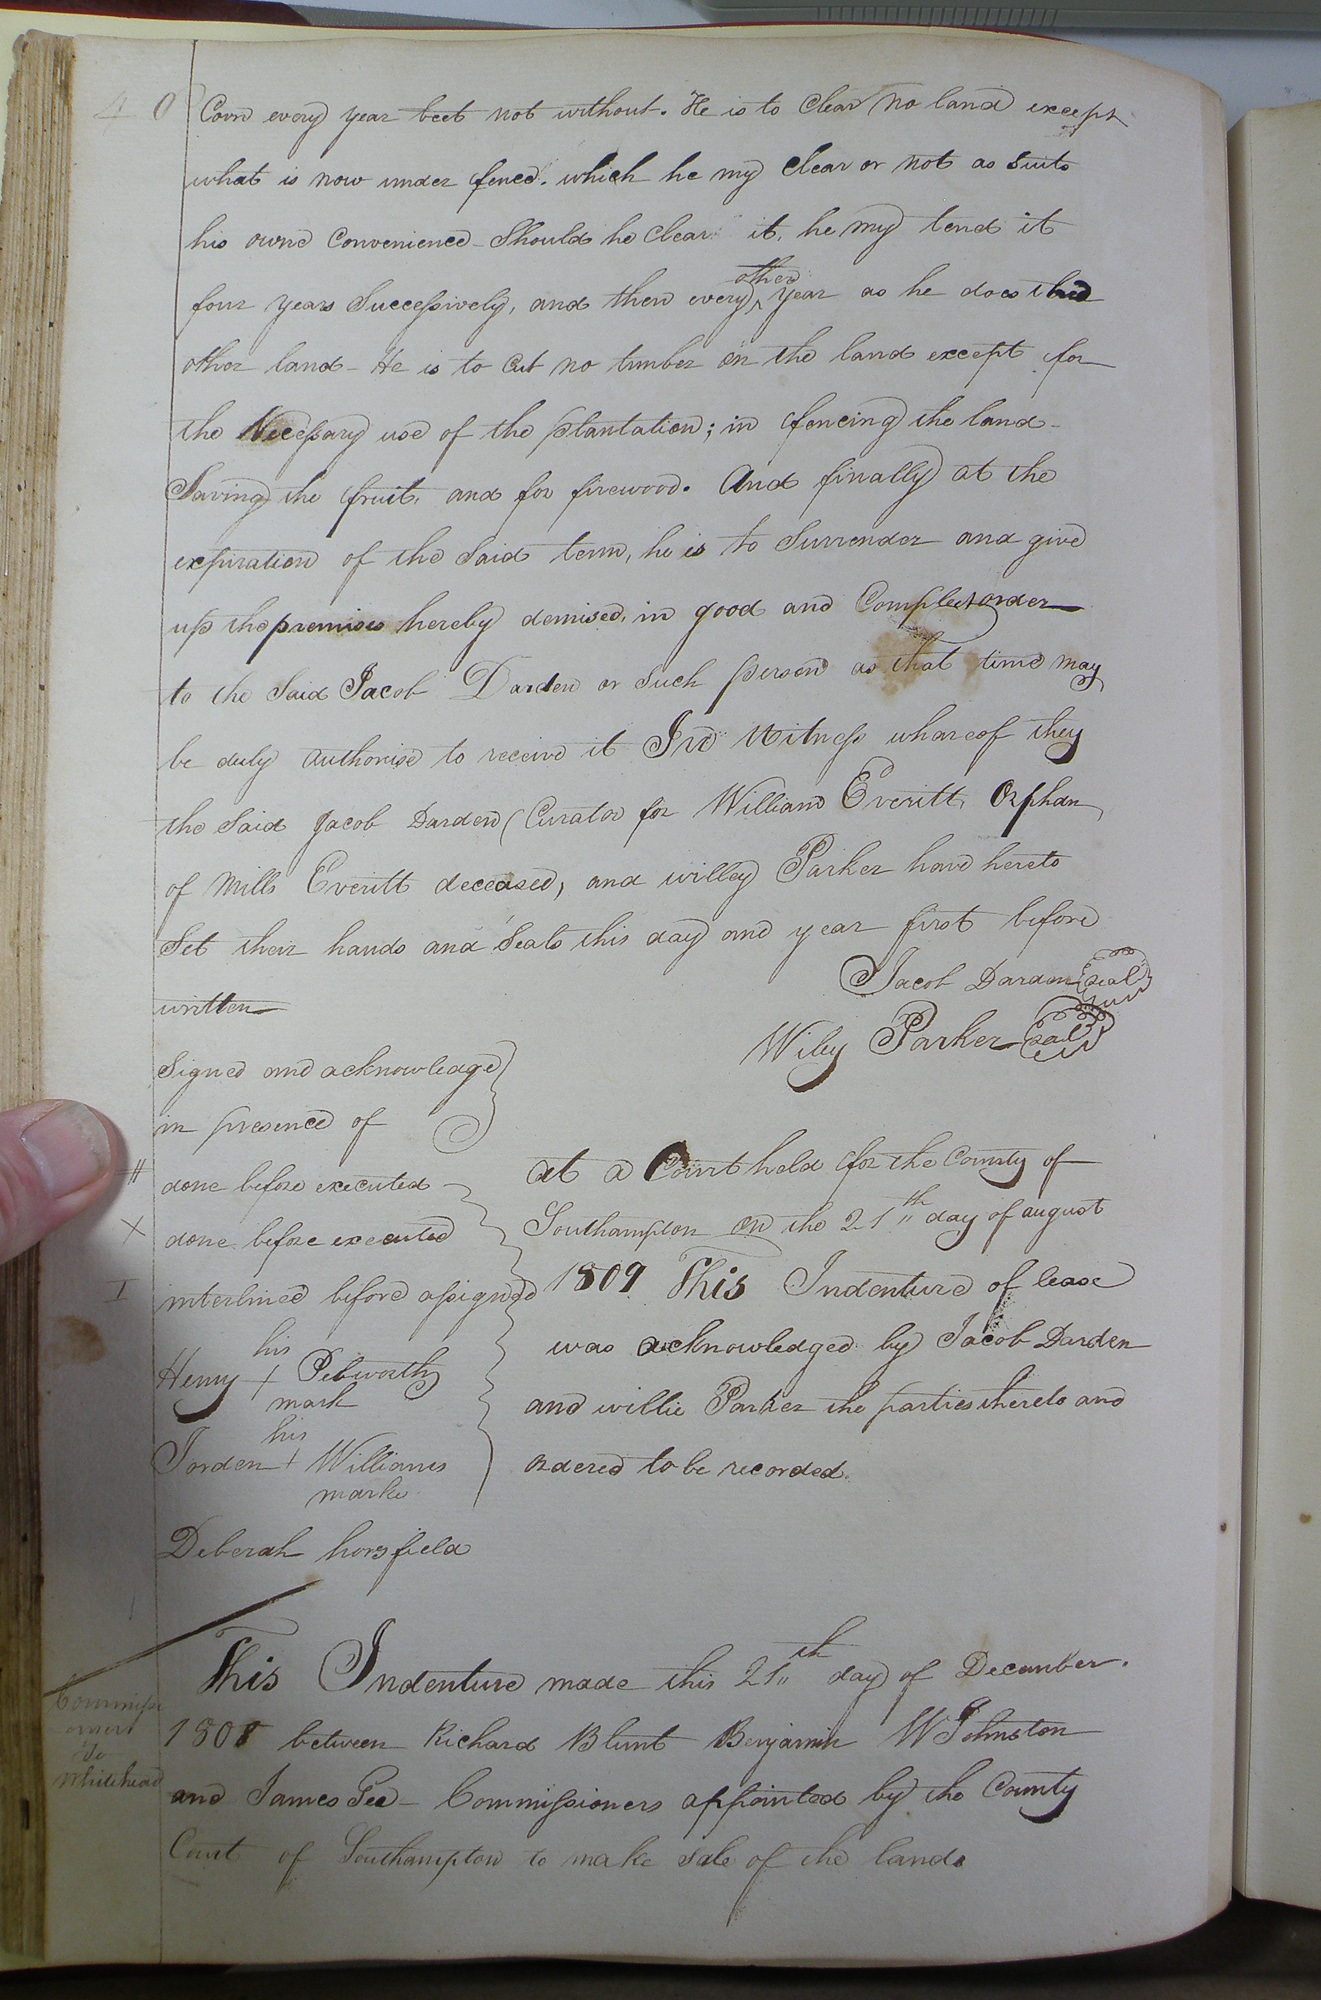 40
Corn every year beet not without. He is to clear no land except
what is now under fence. which he my clear or not as suits
his owne Convenience - Should he clear it, he my tend it
other
four years Successively, and then every ^ year as he does the
other land - He is to Cut no timber on the land except for
the Necessary use of the plantation; in fencing the land -
Saving the fruit. and for firewood. And finally at the
expiration of the Said term, he is to Surrender and give
up the premises hereby demised, in good and Compleet order
to the Said Jacob Darden or Such person as that time may
be duly authorise to receive it In Witness whareof they
the Said Jacob Darden (Curator for William Everitt, Orphan
of Mills Everitt deceased, and willey Parker have hereto
Set their hands and Seals this day and year first before
written
Jacob Darden Seal
Wiley Parker Seal
Signed and acknowledge
in presence of
# done before executed
X done before executed
I interlined before assigned
his
Henry + Pebworth
mark
his
Jorden + Williams
marke
Deberah horsfield
at a Court held for the County of
Southampton on the 21th day of august
1809 This Indenture of lease
was acknowledged by Jacob Darden
and willie Parker the parties thereto and
ordered to be recorded.
Commissi
oners
To
Whitehead
This Indenture made this 21th day of December.
1808 between Richard Blunt Benjamin W Johnston
and James Gee - Commissioners appointed by the County
Court of Southampton to make sale of the lands